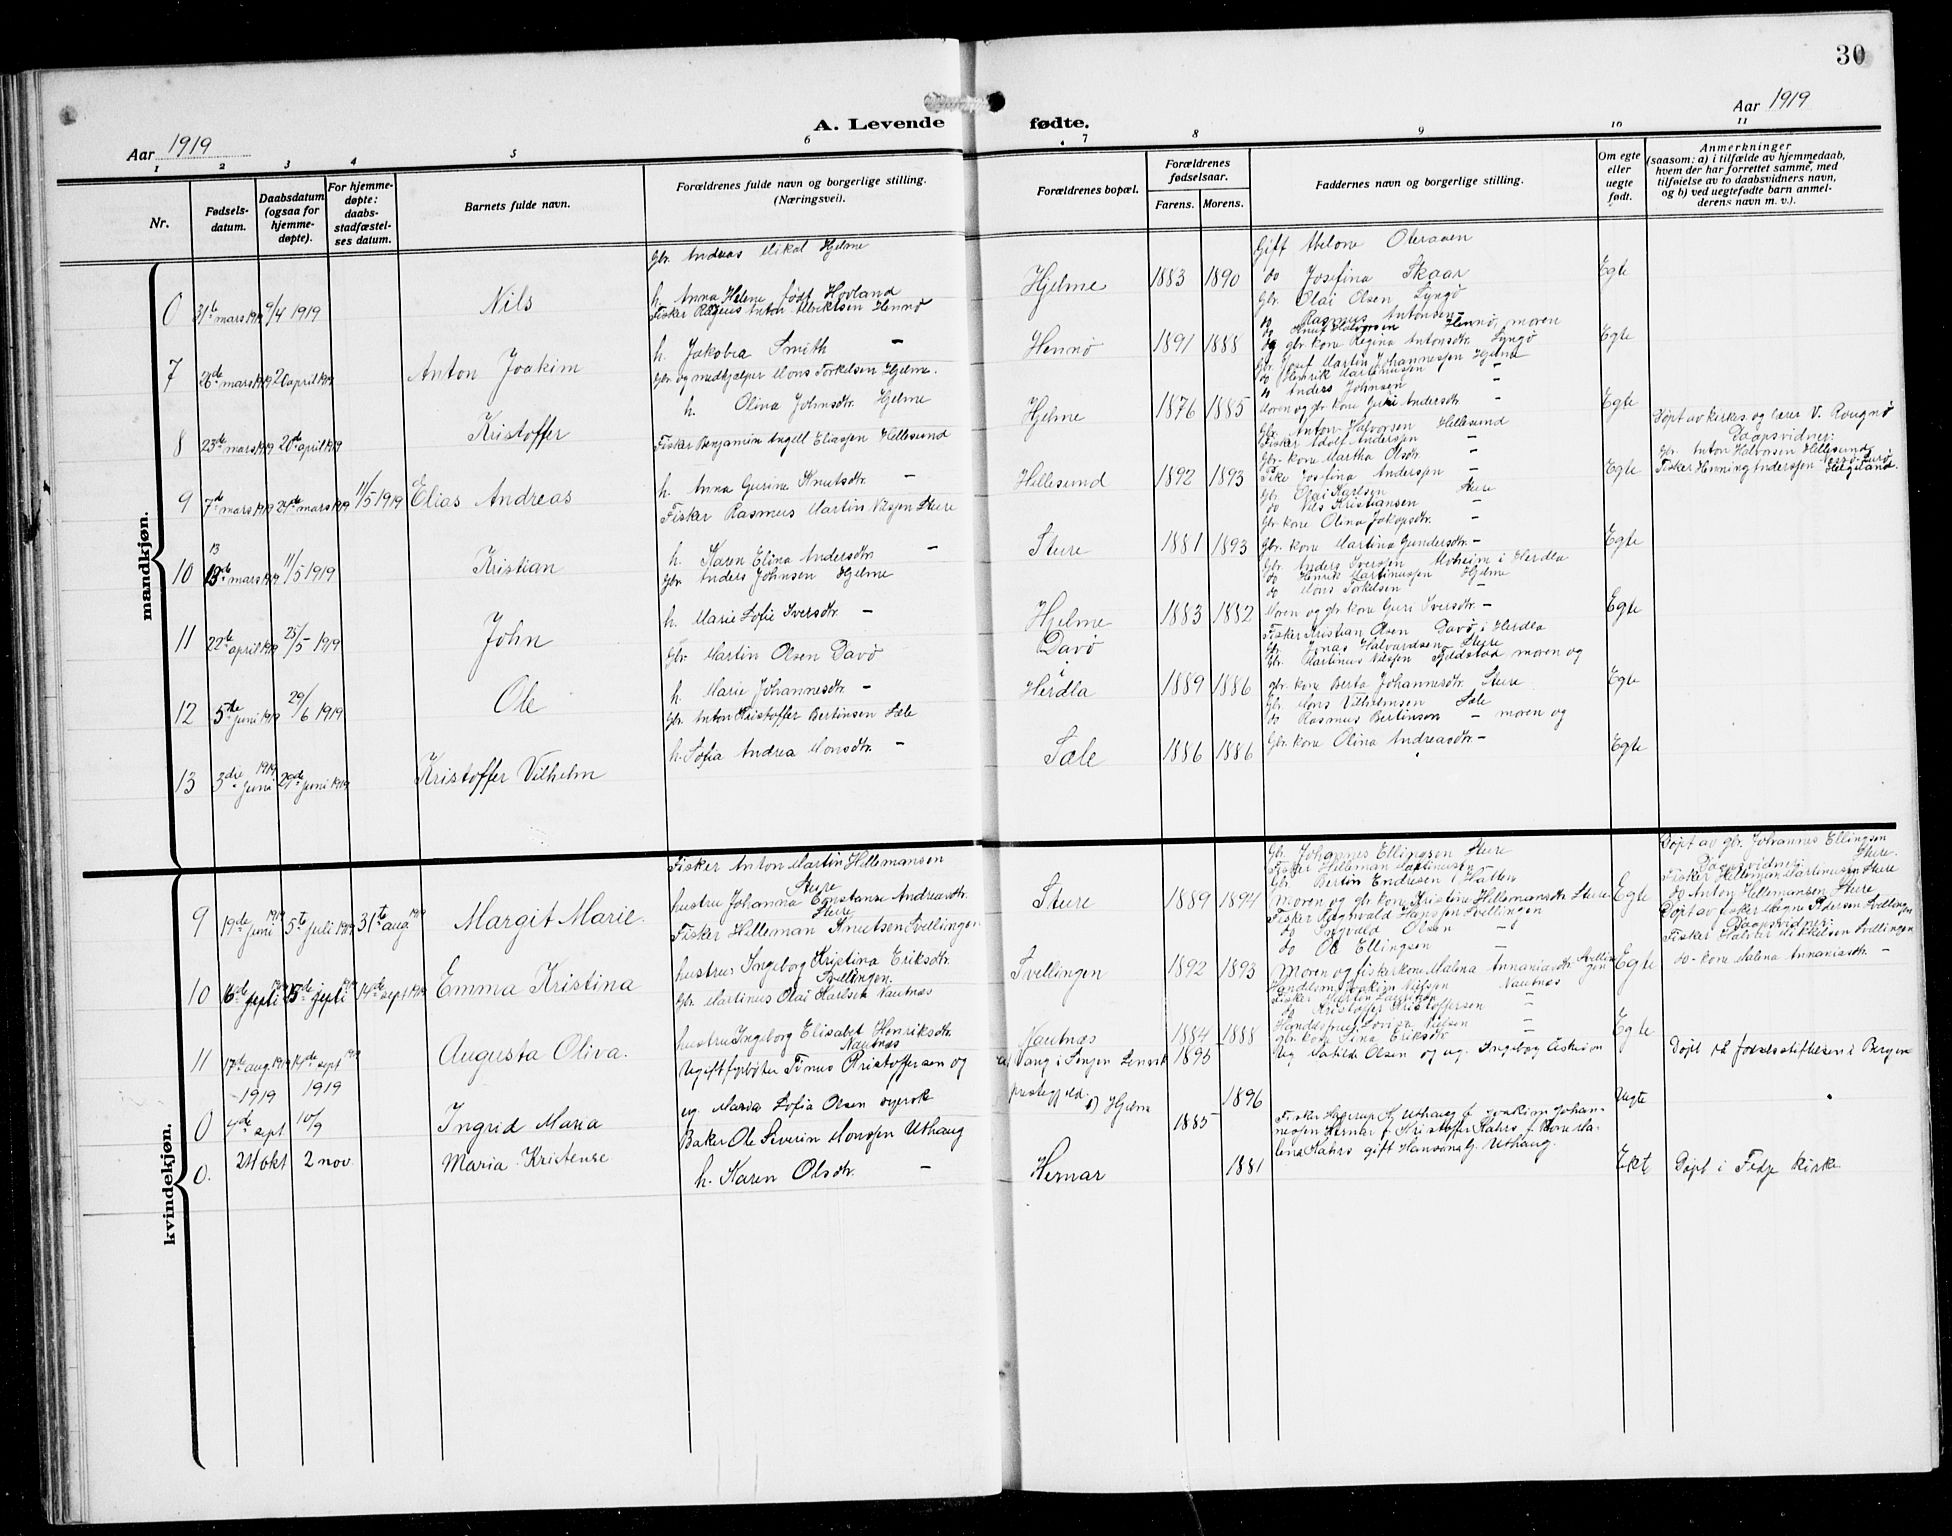 30
Aar 1919
A. Levende fødte.
Aar 1919
1 2 3 4 5 6 7 8 9 10 11
Nr.
Fødsels-datum.
Daabsdatum (ogsaa for hjemme-døpte).
For hjemme-døpte: daabs-stadfæstel-ses datum.
Barnets fulde navn.
Forældrenes fulde navn og borgerlige stilling.
(Næringsvei).
Forældrenes bopæl.
Forældrenes fødselsaar.
Farens. Morens.
Faddernes navn og borgerlige stilling.
Om egte eller uegte født.
Anmerkninger
(saasom: a) i tilfælde av hjemmedaab,
hvem der har forrettet samme, med
tilføielse av to daabsvidners navn,
og b) ved uegtefødte barn anmel-
derens navn m. v.).
mandkjøn.
0 31te mars 1919 9/4 1919 Nils
Gbr. Andreas Mikal Hjelme
h. Anna Helene født Hovland
Hjelme 1883 1890
Gift Oleraaen
do Josefina Skaar
Gbr. Olai Olsen Lyngø
do Rasmus Antonsen
Egte
7 26de mars 1919 20 april 1919 Anton Joakim
Fisker Anton Hennø
h. Jakobea Smith –
Hennø 1891 1888
do Knut Halvorsen Hennø, moren
og gbr. kone Regina Antonsdtr. Lyngø
Egte
8 23de mars 1919 20de april 1919 Kristoffer
Gbr. og medhjælper Mons Torkelsen Hjelme.
h. Olina Johnsdtr. Hjelme
Hjelme 1876 1885
Gbr. Josef Martin Johannessen Hjelme
do Henrik Martinussen –
do Anders Johnsen –
Moren og gbr. kone Guri Andersdtr –
Egte
9 7de mars 1919 24de mars 1919 11/5 1919 Elias Andreas
Fisker Benjamin Ingell Eliassen Hillesund
h. Anna Gurine Knutsdtr. –
Hillesund 1892 1893
Gbr. Anton Halvorsen Hillesund
Fisker Adolf Anderssen –
Gbr. kone Martha Olsdtr –
Pike Josefina Anderssen –
Egte
Døpt av kirkes. og lærer V. Rougnø
Daapsvidner:
Gbr. Anton Halvorsen Hillesund
Fisker Henning Anderssen
10 13de mars 1919 11/5 1919 Kristian
Fisker Rasmus Martin Nilssen Sture
h. Karen Elina Andersdtr. –
Sture 1881 1893
Gbr. Olai Karlsen Sture
do Nils Kristiansen –
Gbr. kone Olina Jakopsdtr. –
Gbr. kone Martina Gundersdtr –
Egte
11 22de april 1919 25/5 1919 John
Gbr. Anders Johnsen Hjelme
h. Marie Sofie Iversdtr. –
Hjelme 1883 1882
Gbr. Anders Iverssen i Herdla
do Henrik Martinussen Hjelme
do Mons Torkelsen –
Moren og gbr. kone Guri Iversdtr. –
Egte
12 5de juni 1919 29/6 1919 Ole
Gbr. Martin Olsen Davø
h. Marie Johannesdtr. –
Davø i Herdla 1889 1886
Fisker Kristian Olsen Davø i Herdla
Gbr. Jonas Halvardsen Sture
Gbr. Martinus Nilssen moren og
gbr. kone Berta Johannesdtr. Sture
Egte
13 3die juni 1919 29de juni 1919 Kristoffer Vilhelm
Gbr. Anton Kristoffer Bertinsen Sæle
h. Sofia Andrea Monsdtr. –
Sæle 1886 1886
Gbr. Mons Vilhelmsen Sæle
do Rasmus Bertinsen – moren og
Gbr. kone Olina Andreasdtr –
Egte
kvindekjøn.
9 19de juni 1919 5te juli 1919 31te aug. 1919 Margit Marie.
Fisker Anton Martin Hillemansen Sture
hustru Johanna Constanse Andreasdtr. Sture
Sture 1889 1894
Gbr. Johannes Ellingsen Sture
Fisker Hilleman Martinussen –
Gbr. Bertin Endresen i Hatten
Moren og gbr. kone Kristine Hillemansdtr Sture
Egte
Døpt av gbr. Johannes Ellingsen Sture.
Daapsvidner:
Fisker Hilleman Martinussen Sture
do Anton Hillemansen Sture
10 Emma Kristina
Fisker Hilleman Knutsen Svellingen
hustru: Ingeborg Kristina Eriksdtr. Svellingen
Svellingen 1892 1893
Fisker Ragnvald Hanssen Svellingen
do Ingvald Olsen –
do Ole Ellingsen –
Moren og fiskerkone Malena Annaniasdtr. Svellingen
Egte
Døpt av fisker Pedersen Svellingen
Daapsvidner:
Fisker Halvor Mikkelsen Svellingen
do - kone Malena Annaniasdtr. –
11 17de aug. 1919 14de sept 1919 Augusta Oliva.
Gbr. Martinus Olai Nautnæs
hustru Ingeborg Elisabet Henriksdtr. Nautnæs
Nautnæs 1884 1888
Handlem. Joakim Nilssen Nautnæs
Fisker Martin –
do Kristoffer Kristoffersen –
gbr. kone Lina Eriksdtr –
Egte
0 1919 4de sept 1919 10/9 Ingrid Maria
Ugift forbøter Kristoffersen og
ug. Maria Sofia Olsen
a) Vang i Songn
prestegjeld. b) Hjelme
1895 1896
Ug. Matilde Olsen og ug. Ingeborg
Uegte
Døpt på fødselsstiftelsen i Bergen
0. 24 okt 2 nov. Maria Kristense
Baker Ole Severin Monssen Uthaug
h. Karen Olsdtr. –
Hernar 1885 1881
Fisker Uthaug f. Joakim Johan-
nessen Hernar f. Kristoffer f. Kone Ma-
lena gift Hansina G. Uthaug.
Ekt
Døpt i Fedje kirke